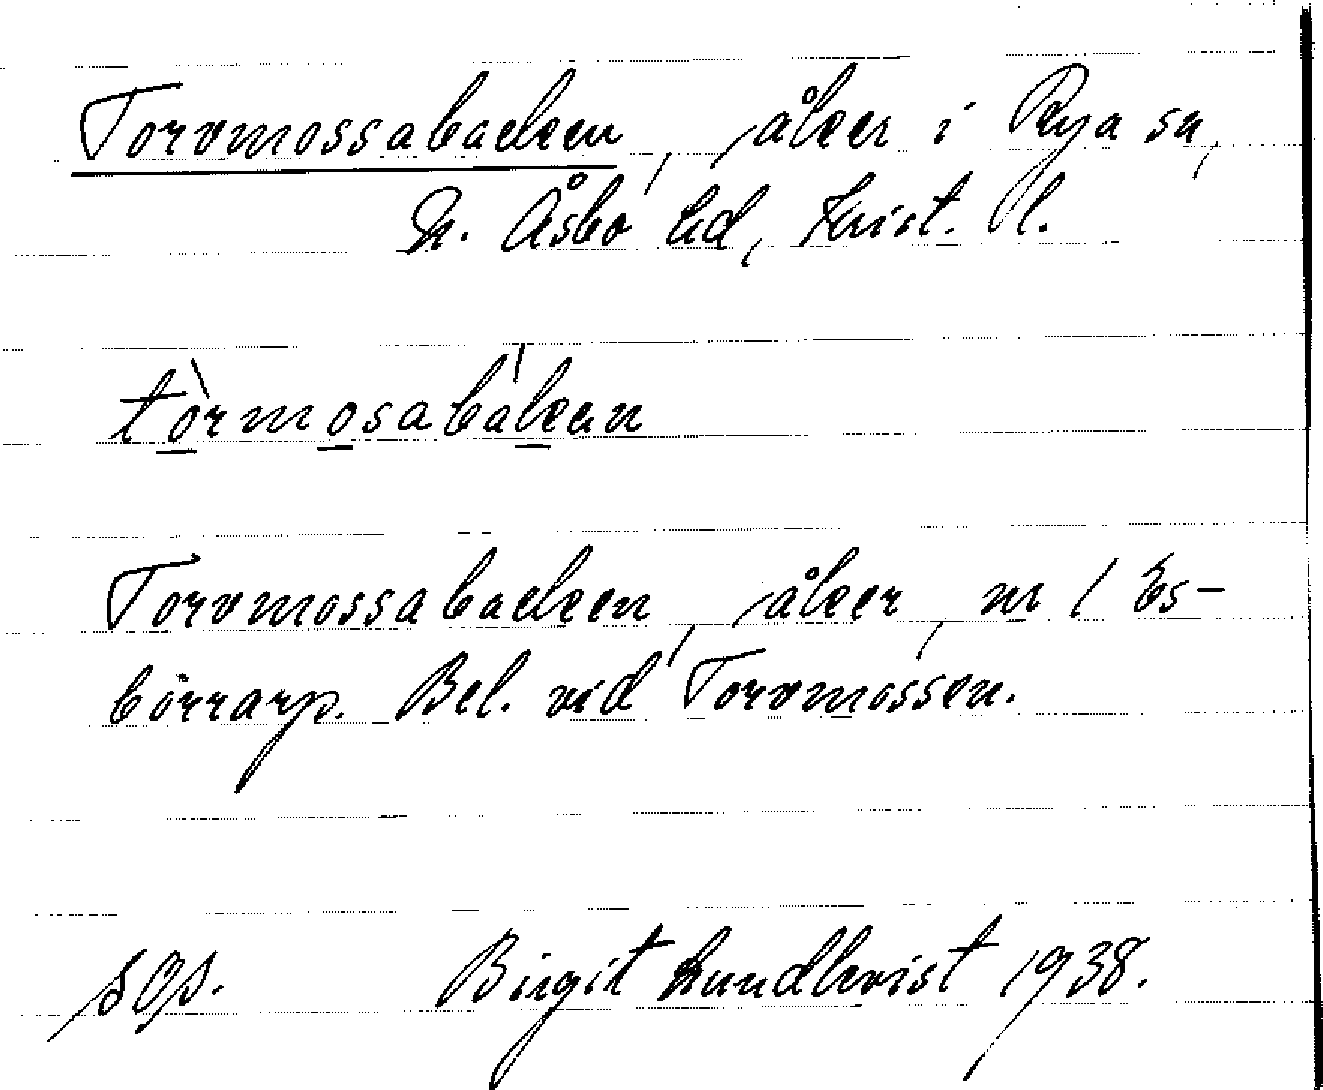 Torvmossabacken, åker i Rya sn,
N. Åsbo hd, Krist. l.
tòrmosabákan
Torvmossabacken, åker, nr 1 Es-
börrarp. Bel. vid Torvmossen.
Birgit Lundkvist 1938.